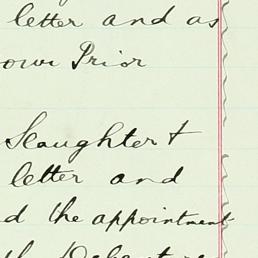 letter and as
Prior
Slaughter &
letter and
d the appointment